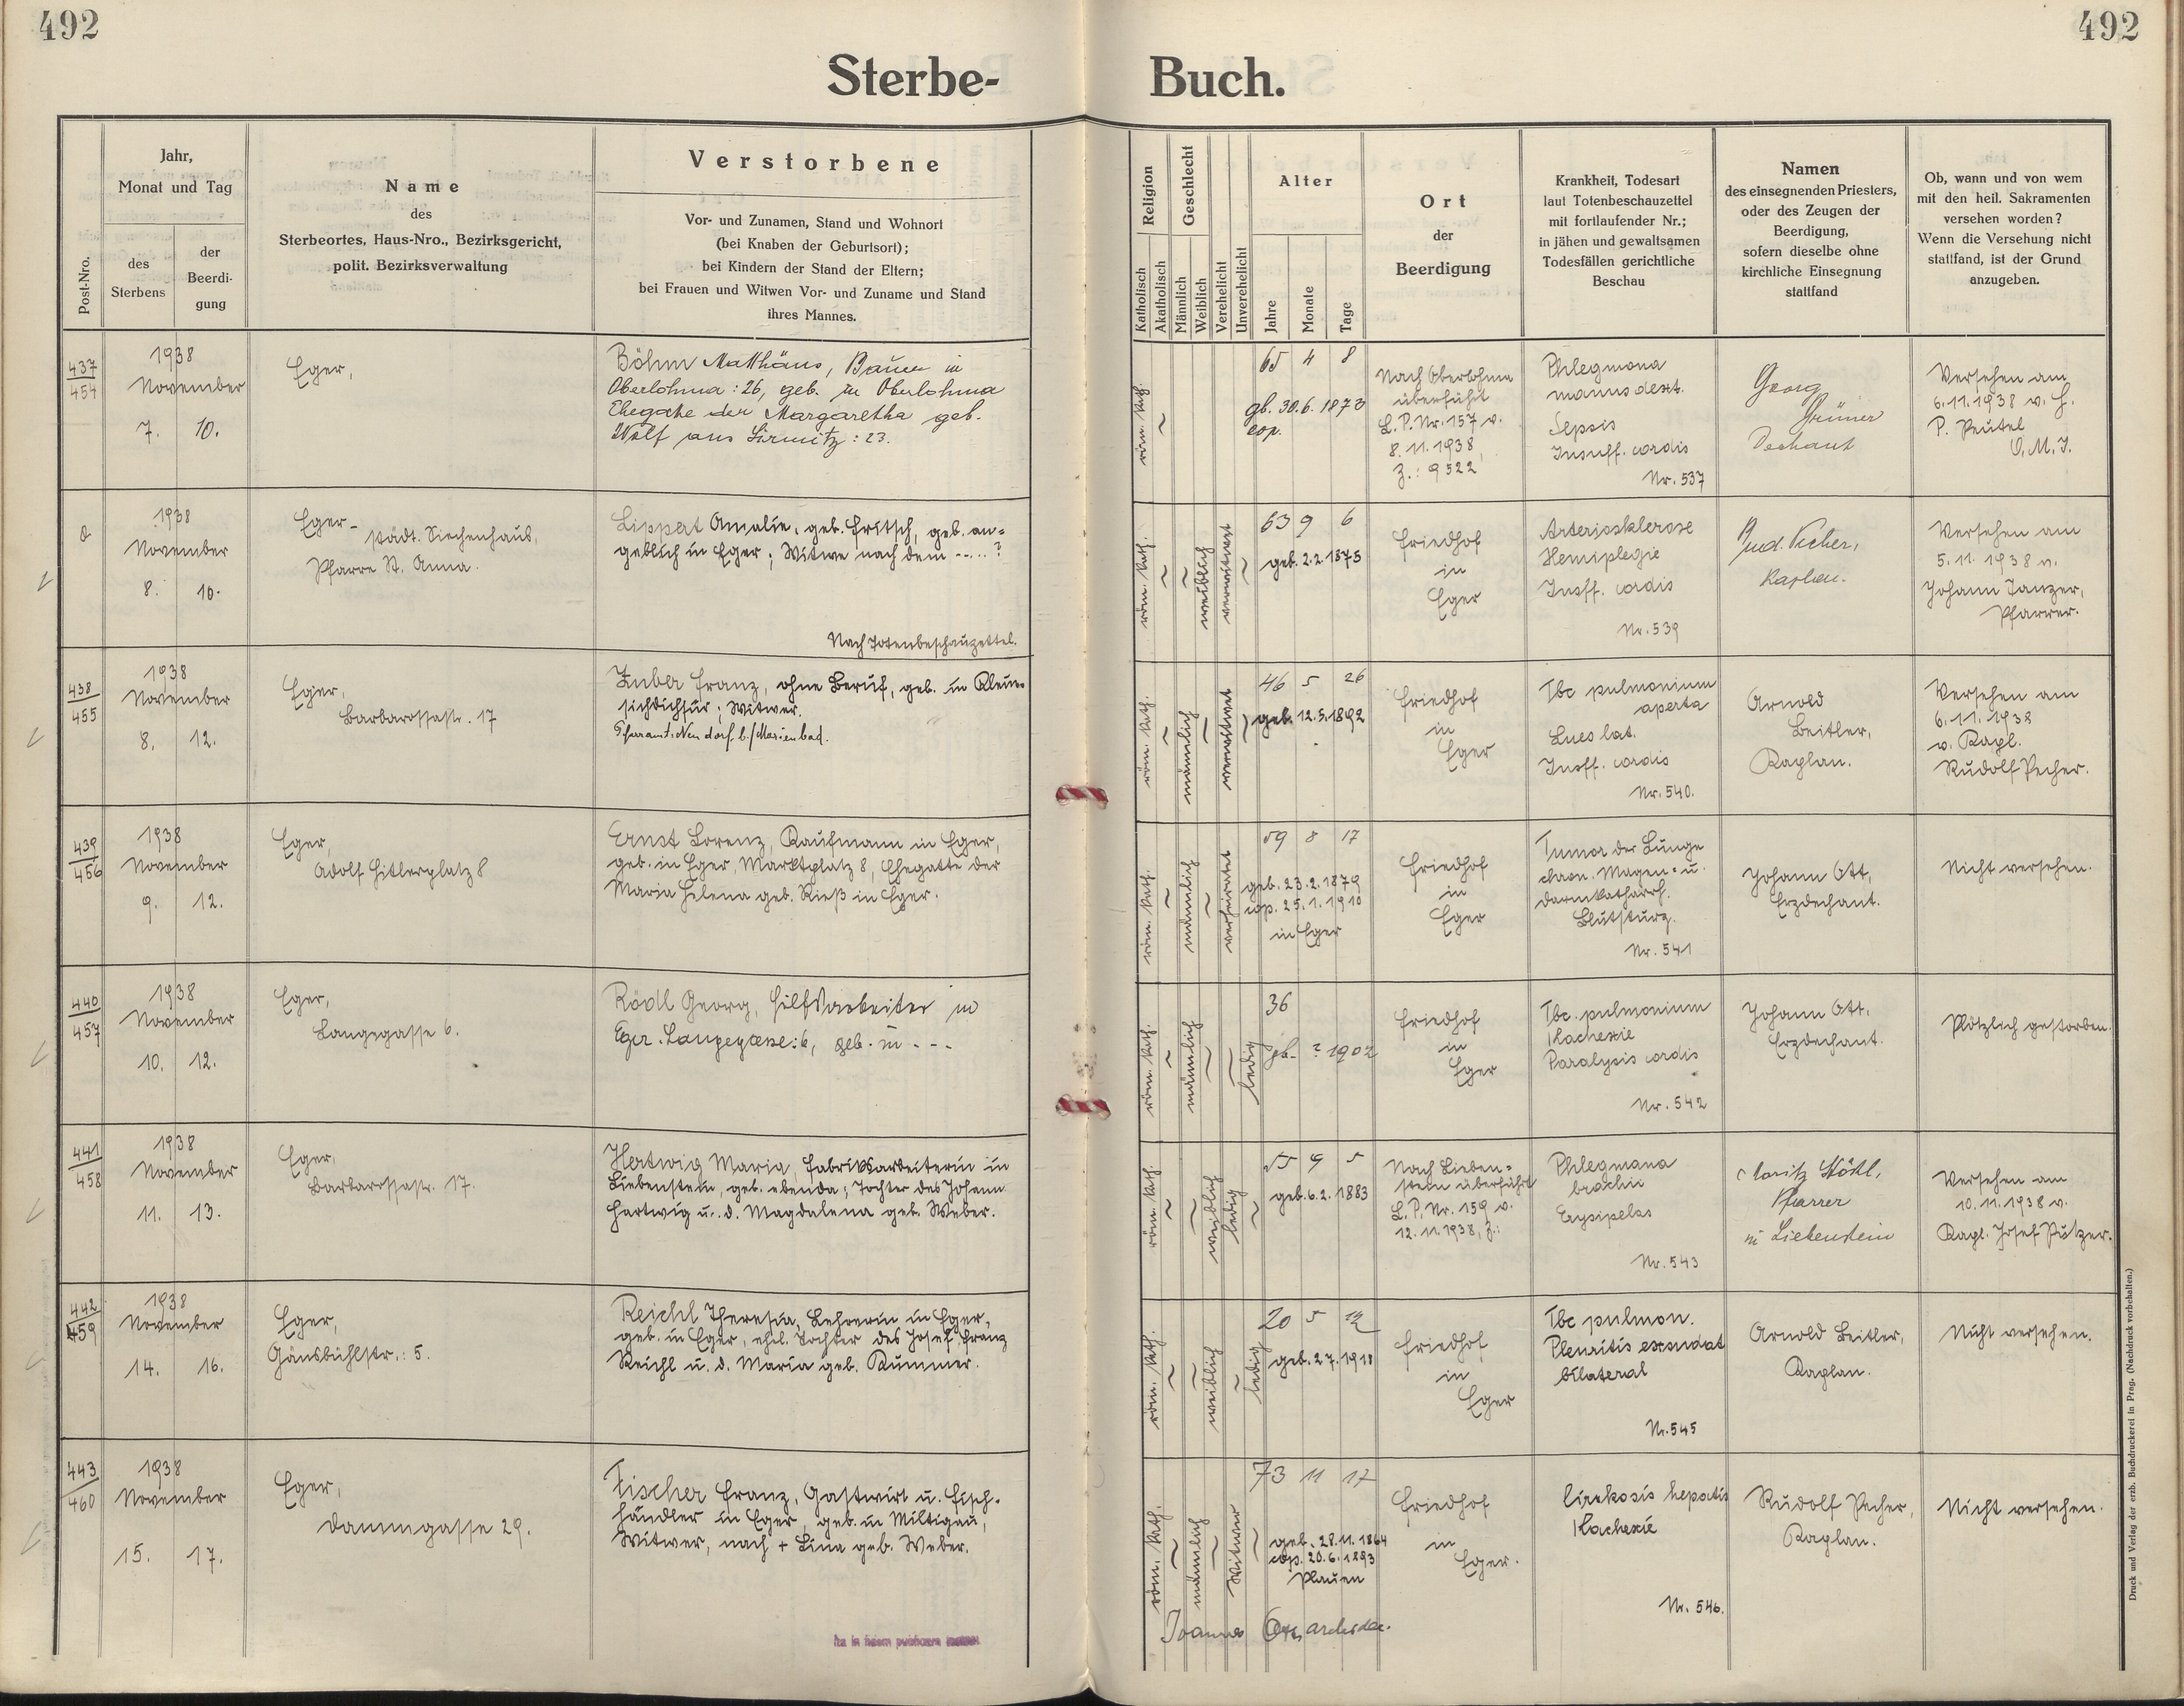 492
492
Sterbe-
Buch.
Post-Nro.
Jahr,
Monat und Tag
des
Sterbens
der
Beerdi-
gung
Name
des
Sterbeortes, Haus-Nro., Bezirksgericht,
polit. Bezirksverwaltung
Verstorbene
Vor- und Zunamen, Stand und Wohnort
(bei Knaben der Geburtsort);
bei Kindern der Stand der Eltern;
bei Frauen und Witwen Vor- und Zuname und Stand
ihres Mannes.
Religion
Katholisch
Akatholisch
Geschlecht
Männlich
Weiblich
Verehelicht
Unverehelicht
Alter
Jahre
Monate
Tage
Ort
der
Beerdigung
Krankheit, Todesart
laut Totenbeschauzettel
mit fortlaufender Nr.;
in jähen und gewaltsamen
Todesfällen gerichtliche
Beschau
Namen
des einsegnenden Priesters,
oder des Zeugen der
Beerdigung,
sofern dieselbe ohne
kirchliche Einsegnung
stattfand
Ob, wann und von wem
mit den heil. Sakramenten
versehen worden?
Wenn die Versehung nicht
stattfand, ist der Grund
anzugeben.
437
454
1938
November
7. 10.
Eger,
Böhm Matthäus, Bauer in
Oberlohma : 26, geb. in Oberlohma
Ehegatte der Margaretha geb.
Wolf aus Sirmitz : 23.
röm. kath.
65 4 8
gb. 30.6.1873
cop.
Nach Oberlohma
überführt
L.P. Nr. 157 v.
8.11.1938,
Z.: 9522
Phlegmona
manus dext.
Sepsis
Insuff. cordis
Nr. 537
Georg
Grüner
Dechant
Versehen am
6.11.1938 v. H.
P. Peutel
O.M.I.
1938
November
8. 10.
Eger-
städt. Siechenhaus,
Pfarre St. Anna.
Lippert Amalie, geb. Fritsch, geb. an-
geblich in Eger; Witwe nach dem -....?
Nach Totenbeschauzettel.
röm. kath.
weiblich
verwitwet
63 9 6
geb. 2.2.1875
Friedhof
in
Eger
Arteriosklerose
Hemiplegie
Insff. cordis
Nr. 539
Rud. Pecher,
Kaplan.
Versehen am
5.11.1938 v.
Johann Tanzer,
Pfarrer.
438
455
1938
November
8. 12.
Eger,
Barbarossastr. 17
Zuber Franz, ohne Beruf, geb. in Klein-
sichdichfür; Witwer.
Pfarramt: Neudorf b./Marienbad.
röm. kath.
männlich
verwitwet
46 5 26
geb. 12.5.1892
Friedhof
in
Eger
Tbc pulmonium
aperta
Lues lat.
Insff. cordis
Nr. 540.
Arnold
Beitler,
Kaplan.
Versehen am
6.11.1938
v. Kapl.
Rudolf Pecher.
439
456
1938
November
9. 12.
Eger,
Adolf Hitlerplatz 8
Ernst Lorenz, Kaufmann in Eger,
geb. in Eger, Marktplatz 8, Ehegatte der
Maria Helena geb. Rieß in Eger.
röm. kath.
männlich
verheiratet
59 8 17
geb. 23.2.1879
cop. 25.1.1910
in Eger
Friedhof
in
Eger
Tumor der Lunge
chron. Magen- u.
Darmkatharrh.
Blutsturz.
Nr. 541
Johann Ott,
Erzdechant.
Nicht versehen.
440
457
1938
November
10. 12.
Eger,
Langegasse 6.
Rödl Georg, Hilfsarbeiter in
Eger. Langegasse: 6, geb. in - - -
röm. kath.
männlich
ledig
36
gb. ? 1902
Friedhof
in
Eger
Tbc. pulmonium
Kachexie
Paralysis cordis
Nr. 542
Johann Ott,
Erzdechant.
Plötzlich gestorben.
441
458
1938
November
11. 13.
Eger,
Barbarossastr. 17.
Hertwig Maria, Fabriksarbeiterin in
Liebenstein, geb. ebenda; Tochter des Johann
Hartwig u. d. Magdalena geb. Weber.
röm. kath.
weiblich
ledig
55 9 5
geb. 6.2.1883
Nach Lieben-
stein überführt
L.P. Nr. 159 v.
12.11.1938, Z.:
Phlegmona
brachii
Erysipelas
Nr. 543
Moritz Stöhl,
Pfarrer
in Liebenstein
Versehen am
10.11.1938 v.
Kapl. Josef Pützer.
442
459
1938
November
14. 16.
Eger,
Gänsbühlstr.: 5.
Reichl Theresia, Lehrerin in Eger,
geb. in Eger, ehel. Tochter des Josef Franz
Reichl u. d. Maria geb. Kummer.
röm. kath.
weiblich
ledig
20 5
geb. 2.7.1918
Friedhof
in
Eger
Tbc pulmon.
Pleuritis exsudat
bilateral
Nr. 545
Arnold Beitler,
Kaplan.
Nicht versehen.
443
460
1938
November
15. 17.
Eger,
Dammgasse 29.
Fischer Franz, Gastwirt u. Fisch-
händler in Eger, geb. in Miltigau,
Witwer, nach + Lina geb. Weber.
röm. kath.
männlich
Witwer
73 11 17
geb. 28.11.1864
cop. 20.6.1893
Plauen
Friedhof
in
Eger.
Cirrhosis hepatis
Kachexie
Nr. 546.
Rudolf Pecher,
Kaplan.
Nicht versehen.
Joannes Ott, archidec.
Druck und Verlag der erzb. Buchdruckerei in Prag. (Nachdruck vorbehalten.)